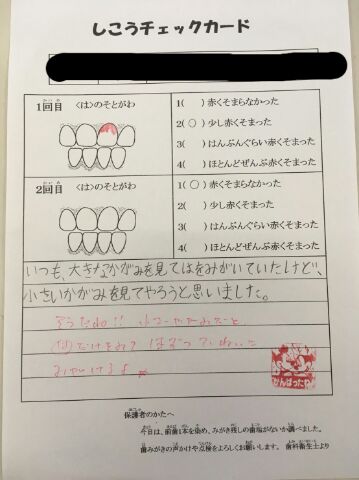 しこうチェックカード
1回目 〈は〉のそとがわ
1( ) 赤くそまらなかった
2( ○ ) 少し赤くそまった
3( ) はんぶんぐらい赤くそまった
4( ) ほとんどぜんぶ赤くそまった
2回目 〈は〉のそとがわ
1( ○ ) 赤くそまらなかった
2( ) 少し赤くそまった
3( ) はんぶんぐらい赤くそまった
4( ) ほとんどぜんぶ赤くそまった
いつも、大きなかがみを見てはをみがいていたけど、
小さいかがみを見てやろうと思いました。
そうだね!!
がんばったね
保護者のかたへ
今日は、前歯1本を染め、みがき残しの歯垢がないか調べました。
歯みがきの声かけや点検をよろしくお願いします。 歯科衛生士より